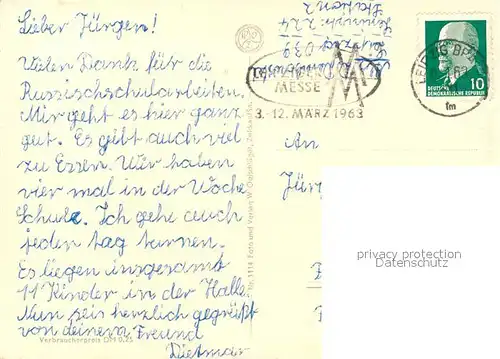 Lieber Jürgen!
Vielen Dank für die
Russischschularbeiten.
Mir geht es hier ganz
gut. Es gibt auch viel
zu Essen. Wir haben
vier mal in der Woche
Schule. Ich gehe auch
jeden tag turnen.
Es liegen insgesamt
11 Kinder in der Halle.
Nun seis herzlich gegrüßt
von deinem Freund
Dietmar
Verbraucherpreis DM 0,25
MESSE
3.-12. MÄRZ 1963
LEIPZIG BPA
fm
10
DEUTSCHE
DEMOKRATISCHE REPUBLIK
An
Jürg
privacy protection
Datenschutz